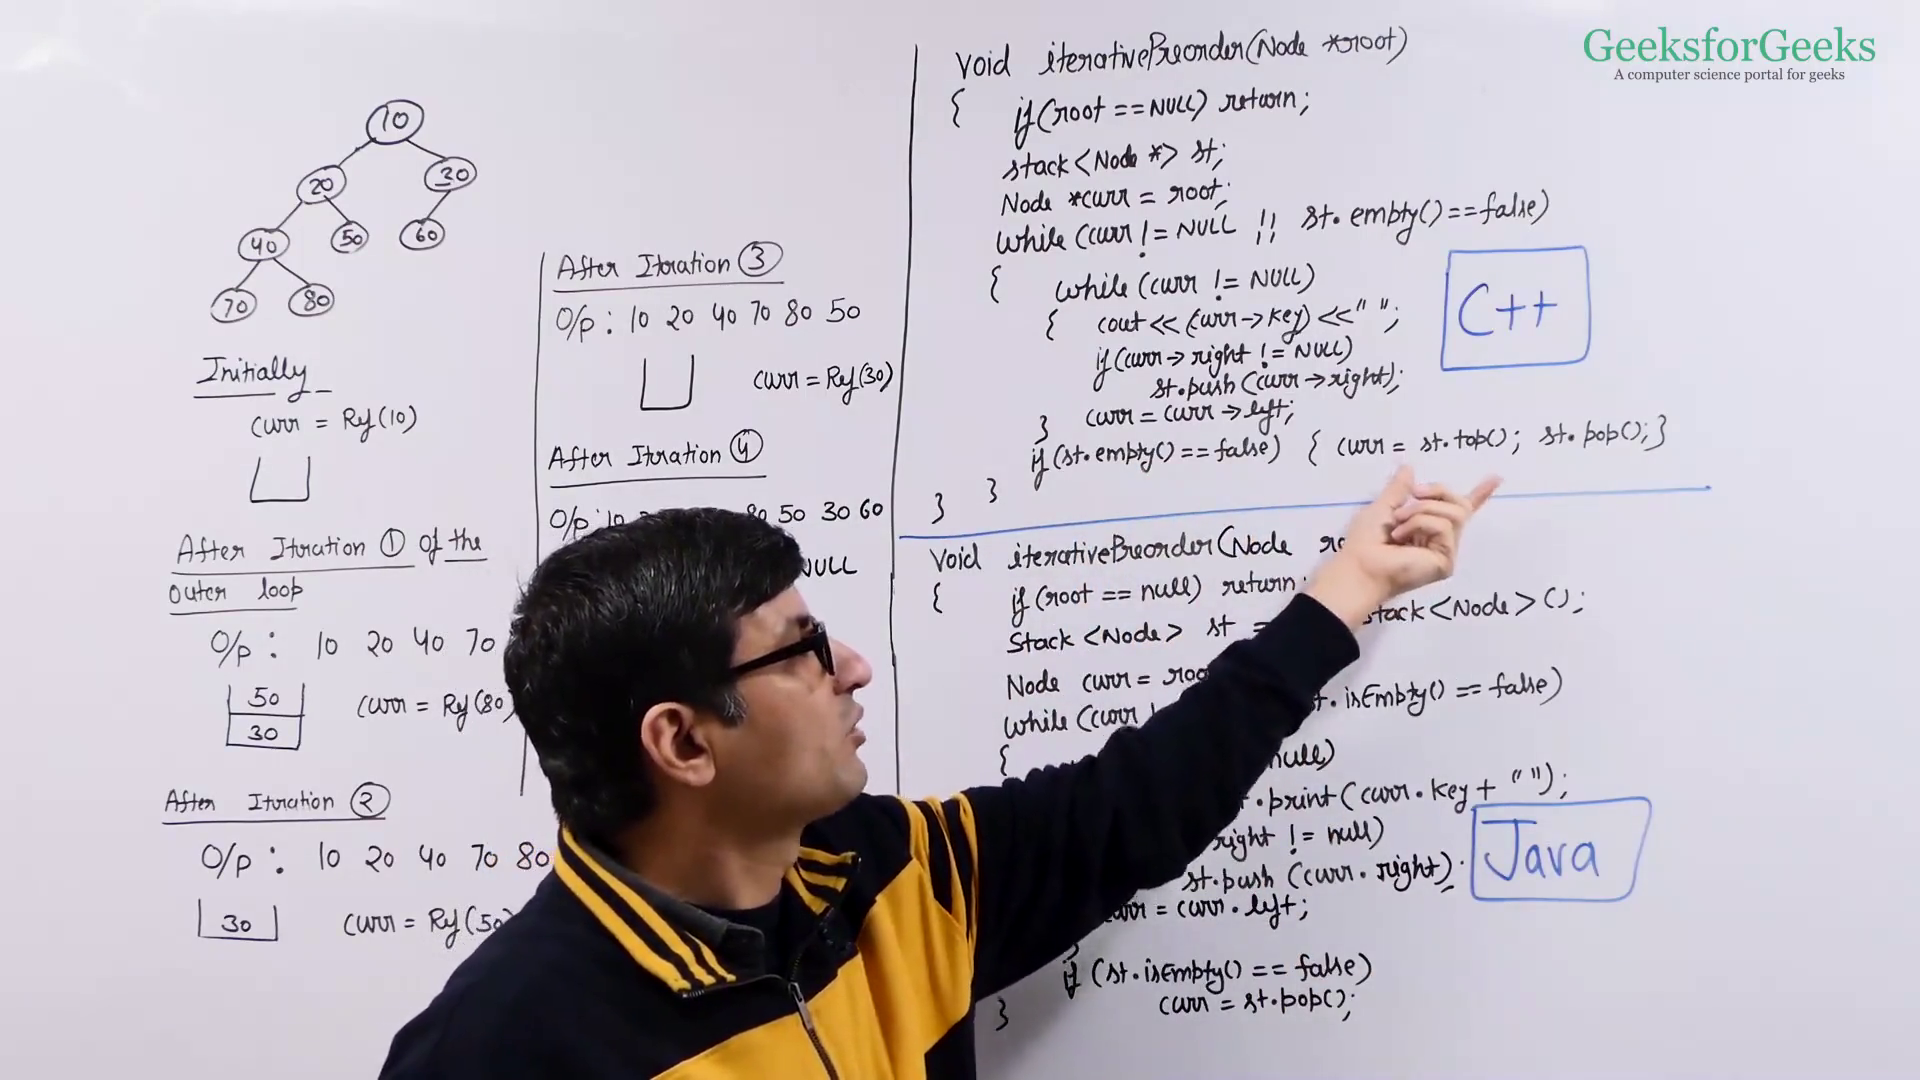 GeeksforGeeks
A computer science portal for geeks
10
20
30
40
50
60
70
80
Initially
curr = Ref(10)
After Iteration 1 of the
outer loop
O/p : 10 20 40 70
50
30
curr = Ref(80)
After Iteration 2
O/p : 10 20 40 70 80
30
curr = Ref(50)
After Iteration 3
O/p : 10 20 40 70 80 50
curr = Ref(30)
After Iteration 4
O/p : 10 80 50 30 60
NULL
void iterativePreorder(Node *root)
{ if(root == NULL) return;
stack<Node *> st;
Node *curr = root;
while (curr != NULL || st.empty() == false)
{ while (curr != NULL)
{ cout << (curr->key) << " ";
if(curr->right != NULL)
st.push(curr->right);
curr = curr->left;
}
if(st.empty() == false) { curr = st.top(); st.pop(); }
}
}
C++
void iterativePreorder(Node
{ if(root == null) return;
Stack<Node> st = Stack<Node>();
Node curr =
while (curr ! .isEmpty() == false)
{ null)
.print(curr.key + " ");
right != null)
st.push(curr.right);
curr = curr.left;
}
if (st.isEmpty() == false)
curr = st.pop();
}
Java